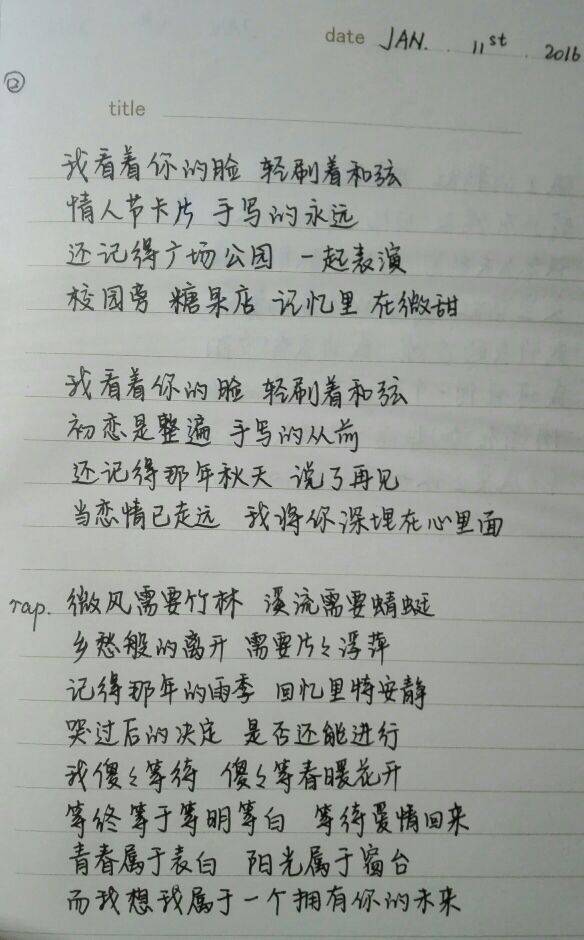 date JAN. 11st. 2016
②
title
我看着你的脸 轻刷着和弦
情人节卡片 手写的永远
还记得广场公园 一起表演
校园旁 糖果店 记忆里 在微甜
我看着你的脸 轻刷着和弦
初恋是整遍 手写的从前
还记得那年秋天 说了再见
当恋情已走远 我将你深埋在心里面
rap. 微风需要竹林 溪流需要蜻蜓
乡愁般的离开 需要片々浮萍
记得那年的雨季 回忆里特安静
哭过后的决定 是否还能进行
我傻々等待 傻々等春暖花开
等终等于等明等白 等待爱情回来
青春属于表白 阳光属于窗台
而我想我属于一个拥有你的未来